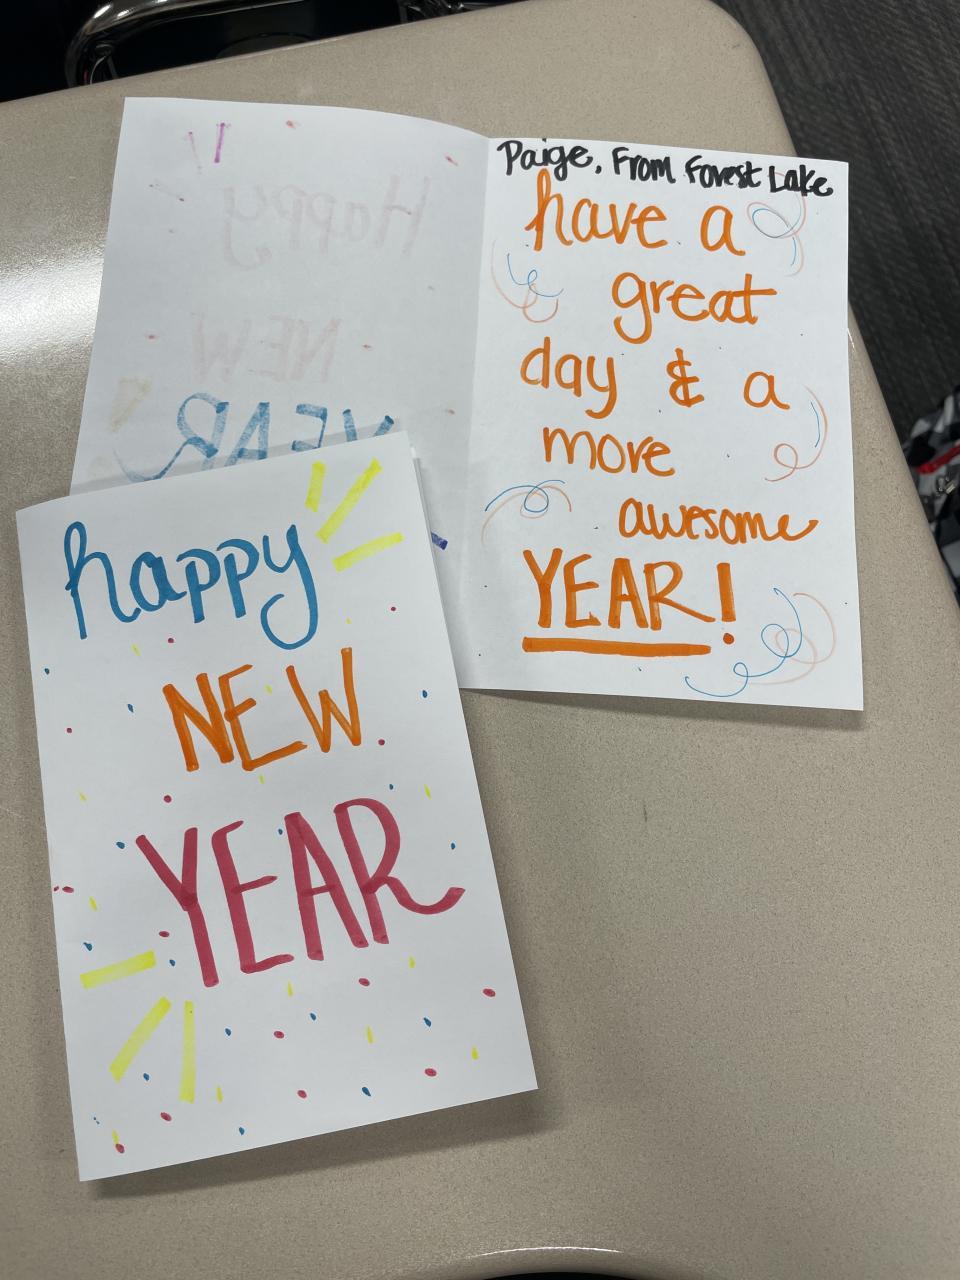 Paige, From Forest Lake
have a
great
day & a
more
awesome
YEAR!
Happy
NEW
YEAR
happy
NEW
YEAR